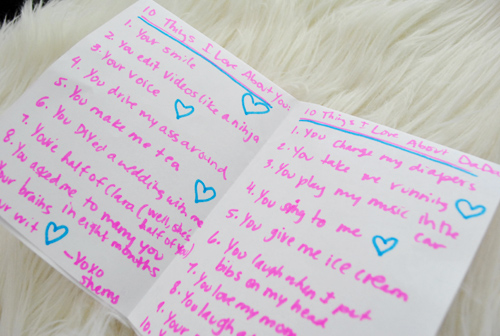 10 Things I Love About You:
1. Your smile
2. You edit videos like a ninja
3. Your voice
4. You drive my ass around
5. You make me tea
6. You DIYed a wedding with me
7. You're half of Clara (well, she's half of you)
8. You asked me to marry you
in eight months
Your brains
wit
- YoYo
10 Things I Love About DaDa
1. You change my diapers
2. You take me running
3. You play my music in the car
4. You sing to me
5. You give me ice cream
6. You laugh when I put
bibs on my head
7. You love my
8. You laugh
9. Your
10. You